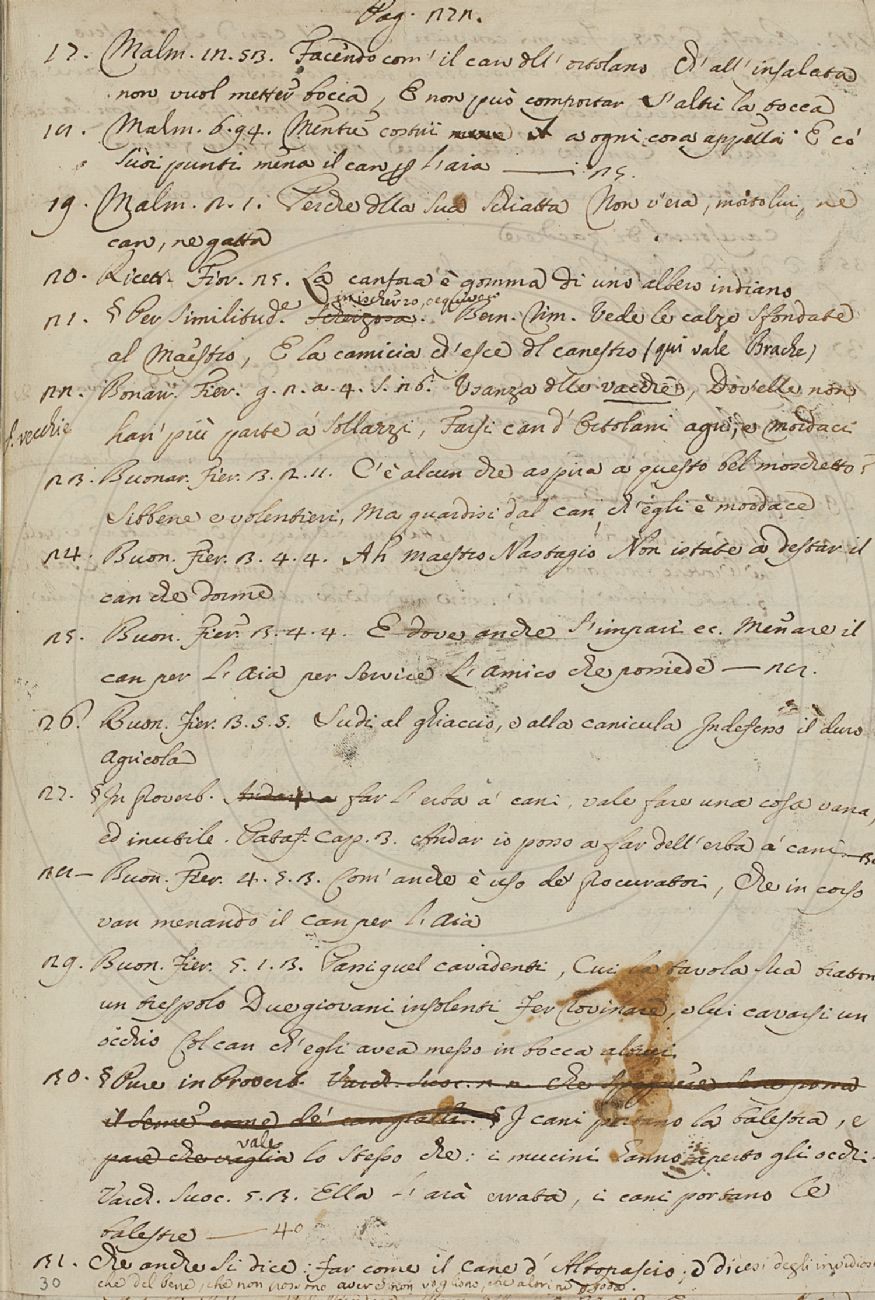 Pag. 121.
17. Malm. 12. 53. Facendo com' il can dell' ortolano Ch' all' insalata
non vuol metter bocca, E non può comportar S' altri la tocca
18. Malm. 6. 94. Mentre costui a ogni cosa appella E co'
suoi punti mena il can p l' aia — 25.
19. Malm. 2. 1. Perche della sua schiatta Non v'era, morto lui, nè
can, ne gatta
20. Ricett. Fior. 25. La canfora è gomma di uno albero indiano
in ischerzo, o equivoco
21. § Per similitud. Bern. Rim. Vede le calze sfondate
al Maestro, E la camicia ch' esce del canestro (qui vale Brache)
22. Bonarr. Fier. g. 2. a. 4. s. 26. Usanza delle vacche, Dov' elle non
f. vecchie
han' più parte a' sollazzi, Farsi can d' Ortolani agri, e mordaci
23. Buonar. Fier. 3. 2. 11. C'è alcun che aspira a questo bel moschetto?
Sibbene e volentieri, Ma guardisi dal can, ch' egli è mordace
24. Buon. Fier. 3. 4. 4. Ah maestro Nastagio, Non istate a destar il
can che dorme
25. Buon. Fier. 3. 4. 4. E dove anche s' impari ec. Menare il
can per l' Aia per servire L' Amico che possiede — 28.
26. Buon. Fier. 3. 5. 5. Sudi al ghiaccio, e alla canicula Indefesso il duro
Agricola
27. § In Proverb. Andar a far l' erba a' cani, vale fare una cosa vana,
ed inutile. Pataf. Cap. 3. Andar io posso a far dell' erba a' cani
28 — Buon. Fier. 4. 5. 3. Com' anche è uso de' Procuratori, Che in corso
van menando il can per l' Aia
29. Buon. Fier. 5. 1. 3. Parsi quel cavadenti, Cui la tavola sua
un trespolo Due giovani insolenti Fer rovinare, e lui cavarsi un
occhio Col can ch' egli avea messo in bocca altrui
30. § Pure in Proverb. Varch. Suoc.
il seme § I cani portano la balestra, e
vale
pare che vaglia lo stesso che: i mucini hanno aperto gli occhi.
Varch. Suoc. 5. 3. Ella l' arà errata, i cani portano le
balestre — 40
31. Che anche si dice: far come il cane d' Altopascio; e dicesi degli invidiosi
30 che del bene, che non possono avere non vogliono, che altri ne goda.